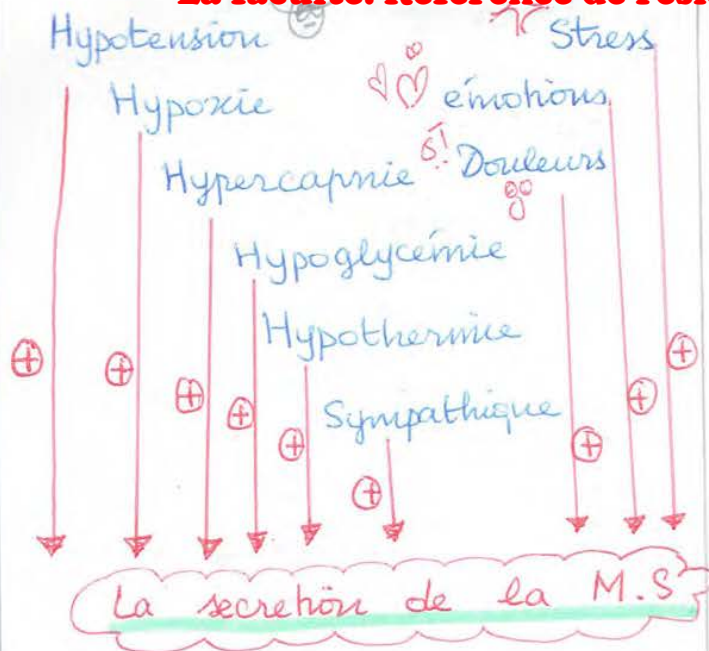 Hypotension
Stress
Hypoxie
émotions
Hypercapnie
Douleurs
Hypoglycémie
Hypothermie
Sympathique
+ + + + + + + + +
La secretion de la M.S